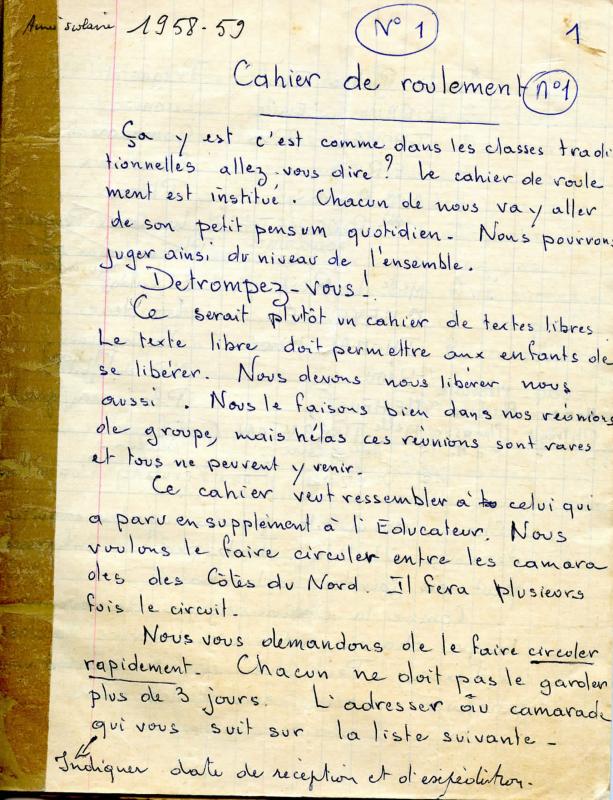 Année scolaire 1958-59
N° 1
1
Cahier de roulement n°1
Ça y est c'est comme dans les classes tradi
tionnelles allez-vous dire ? Le cahier de roule
ment est institué. Chacun de nous va y aller
de son petit pensum quotidien - Nous pourrons
juger ainsi du niveau de l'ensemble.
Detrompez-vous !
Ce serait plutôt un cahier de textes libres
Le texte libre doit permettre aux enfants de
se libérer. Nous devons nous libérer nous
aussi. Nous le faisons bien dans nos réunions
de groupe, mais hélas ces réunions sont rares
et tous ne peuvent y venir.
Ce cahier veut ressembler à celui qui
a paru en supplément à l'Educateur. Nous
voulons le faire circuler entre les camara
des des Côtes du Nord. Il fera plusieurs
fois le circuit.
Nous vous demandons de le faire circuler
rapidement. Chacun ne doit pas le garder
plus de 3 jours. L'adresser au camarade
qui vous suit sur la liste suivante -
Indiquer date de réception et d'expédition.